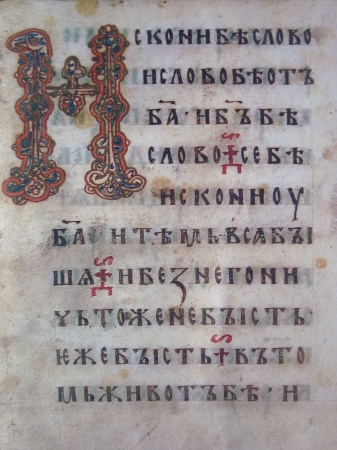 Искони бѣ слово
и слово бѣ отъ
б҃а· и б҃ъ бѣ
слово· се бѣ
искони оу
б҃а· и тѣмь вся бꙑ
шѧ· и без него ни
чьтоже не бꙑсть·
еже бꙑсть· въ то
мь животъ бѣ· и